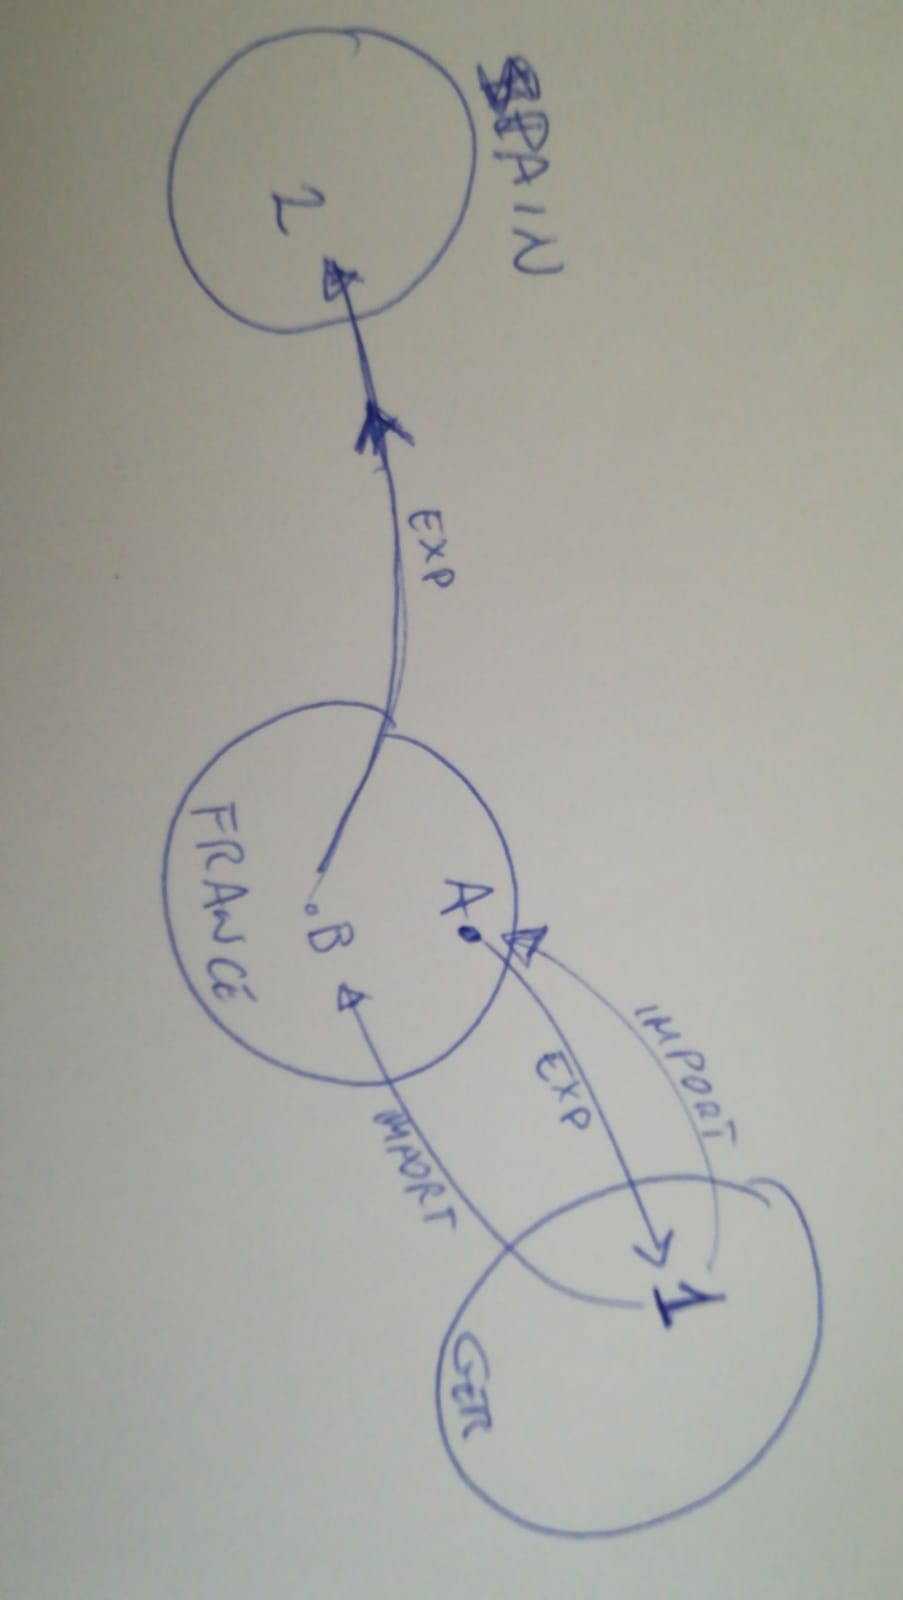 SPAIN
2
EXP
FRANCE
A
B
IMPORT
EXP
IMPORT
1
GER